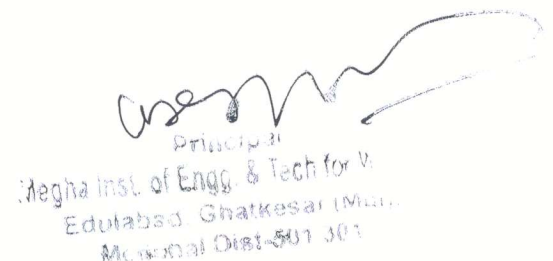 Principal
Megha Inst. of Engg. & Tech for W
Edulabad, Ghatkesar (Man
Medchal Dist-501 301